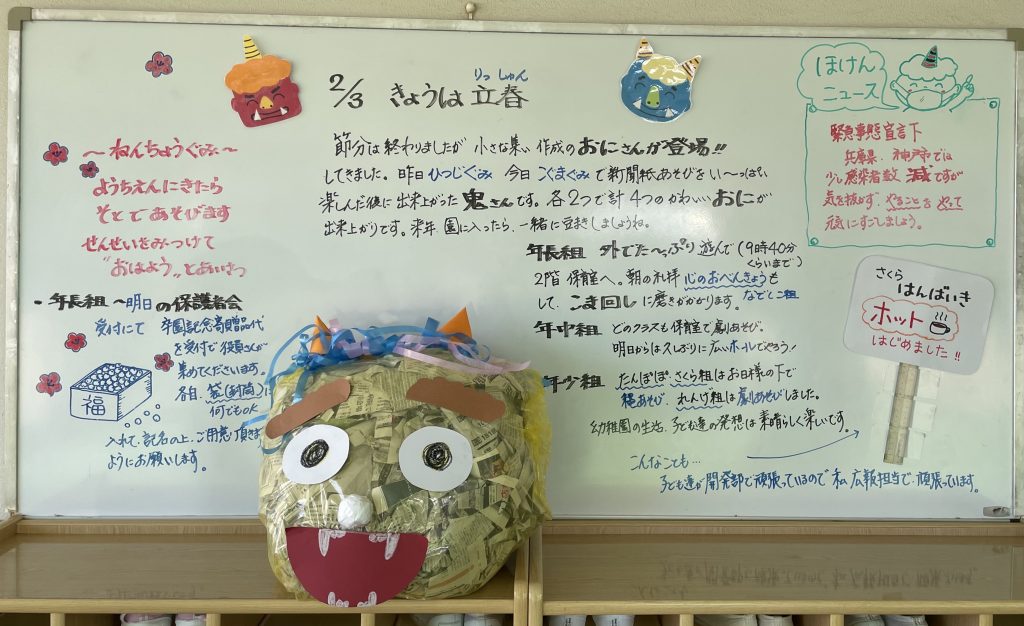 2/3 きょうは立春
りっしゅん
節分は終わりましたが 小さな集い作成のおにさんが登場!!
してきました。昨日ひつじぐみ 今日こぐまぐみで新聞紙あそびをい〜っぱい
楽しんだ後に出来上がった鬼さんです。各2つで計4つのかわいいおにが
出来上がりです。来年、園に入ったら、一緒に豆まきしましょうね。
〜ねんちょうぐみ〜
ようちえんにきたら
そとであそびます
せんせいをみつけて
"おはよう"とあいさつ
・年長組〜明日の保護者会
受付にて 卒園記念寄贈品代
を受付で役員さんが
集めてくださいます。
各自、袋(封筒)に
何でもOK
入れて、記名の上、ご用意頂きます
ようにお願いします。
福
年長組 外でた〜っぷり遊んで(9時40分
くらいまで)
2階 保育室へ。朝の礼拝 心のおべんきょうも
して、こま回しに磨きがかかります。なでしこ組
年中組 どのクラスも保育室で劇あそび。
明日からは久しぶりに広いホールでやろう!
年少組 たんぽぽ、さくら組はお日様の下で
縄あそび、れんげ組は劇あそびしました。
幼稚園の生活、子ども達の発想は素晴らしく楽しいです。
こんなことも…
子ども達が開発部で頑張っているので 私、広報担当で頑張っています。
ほけん
ニュース
緊急事態宣言下
兵庫県、神戸市では
少し感染者数 減ですが
気を抜かず、やることをやって
元気にすごしましょう。
さくら
はんばいき
ホット
はじめました!!